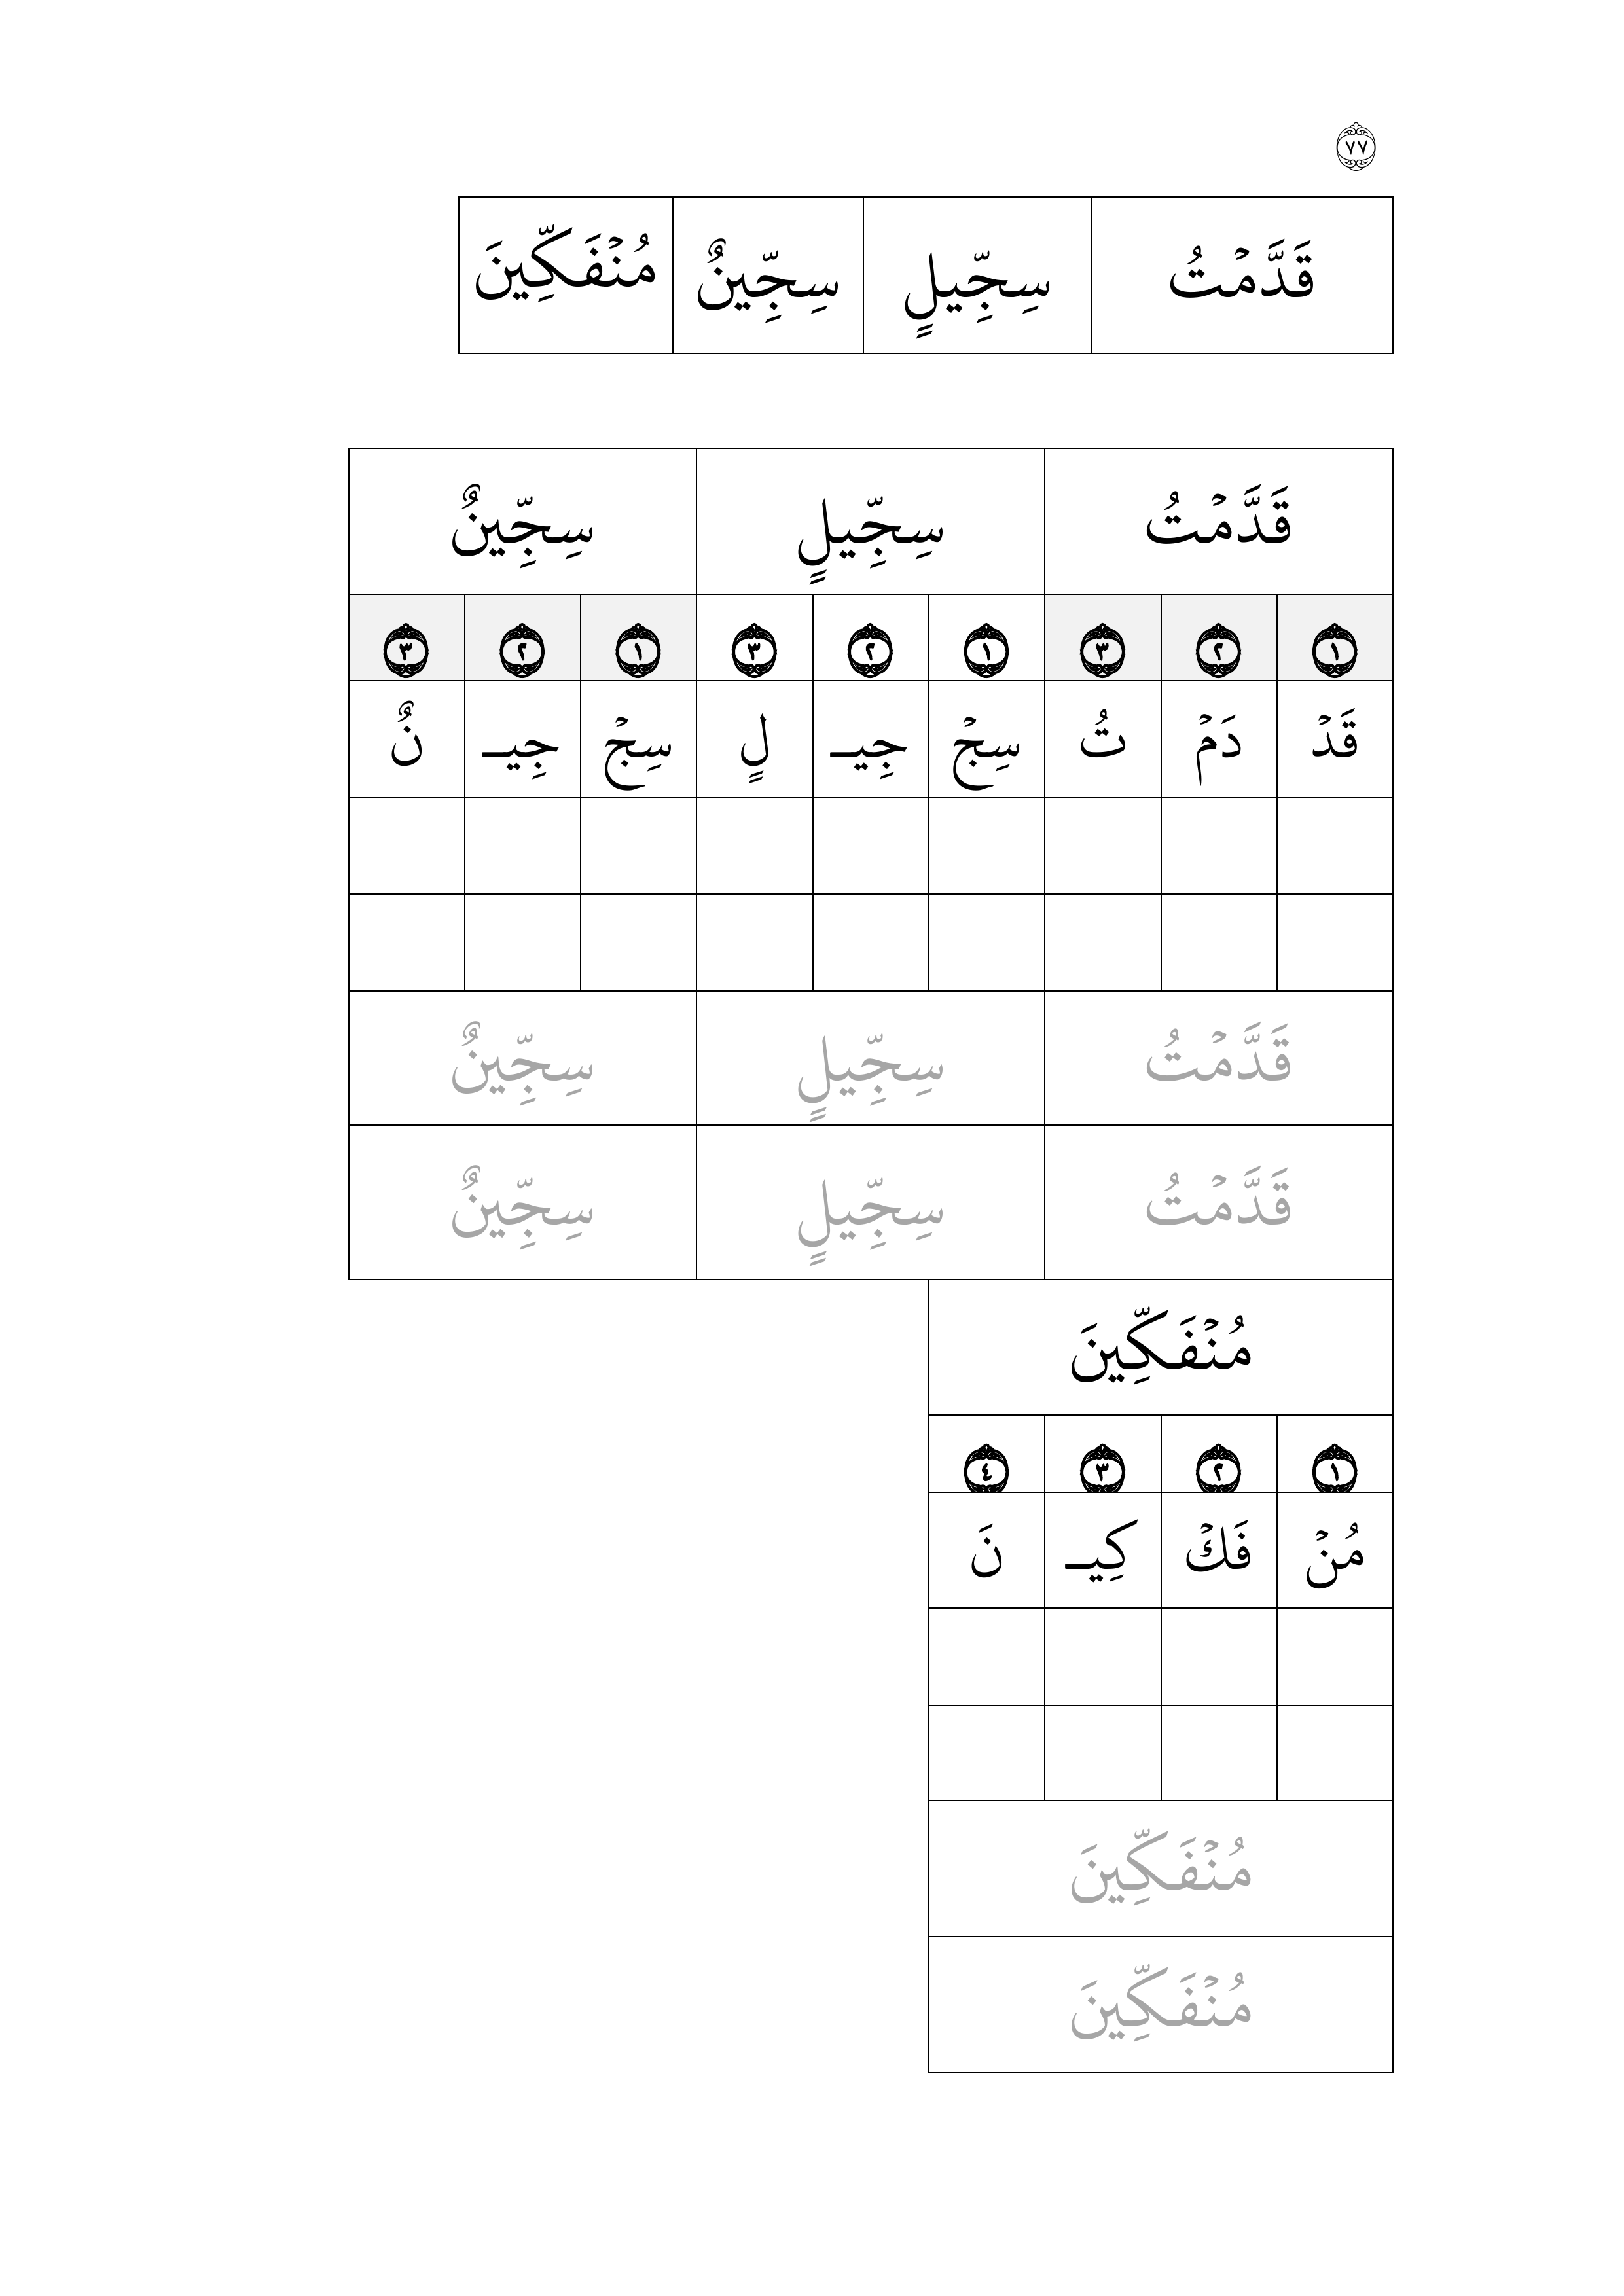 ٧٧
قَدَّمۡتُ سِجِّيلٍ سِجِّينٌ مُنۡفَكِّينَ
قَدَّمۡتُ سِجِّيلٍ سِجِّينٌ
١ ٢ ٣ ١ ٢ ٣ ١ ٢ ٣
قَدۡ دَمۡ تُ سِجۡ جِيـ لٍ سِجۡ جِيـ نٌ
قَدَّمۡتُ سِجِّيلٍ سِجِّينٌ
قَدَّمۡتُ سِجِّيلٍ سِجِّينٌ
مُنۡفَكِّينَ
١ ٢ ٣ ٤
مُنۡ فَكۡ كِيـ نَ
مُنۡفَكِّينَ
مُنۡفَكِّينَ